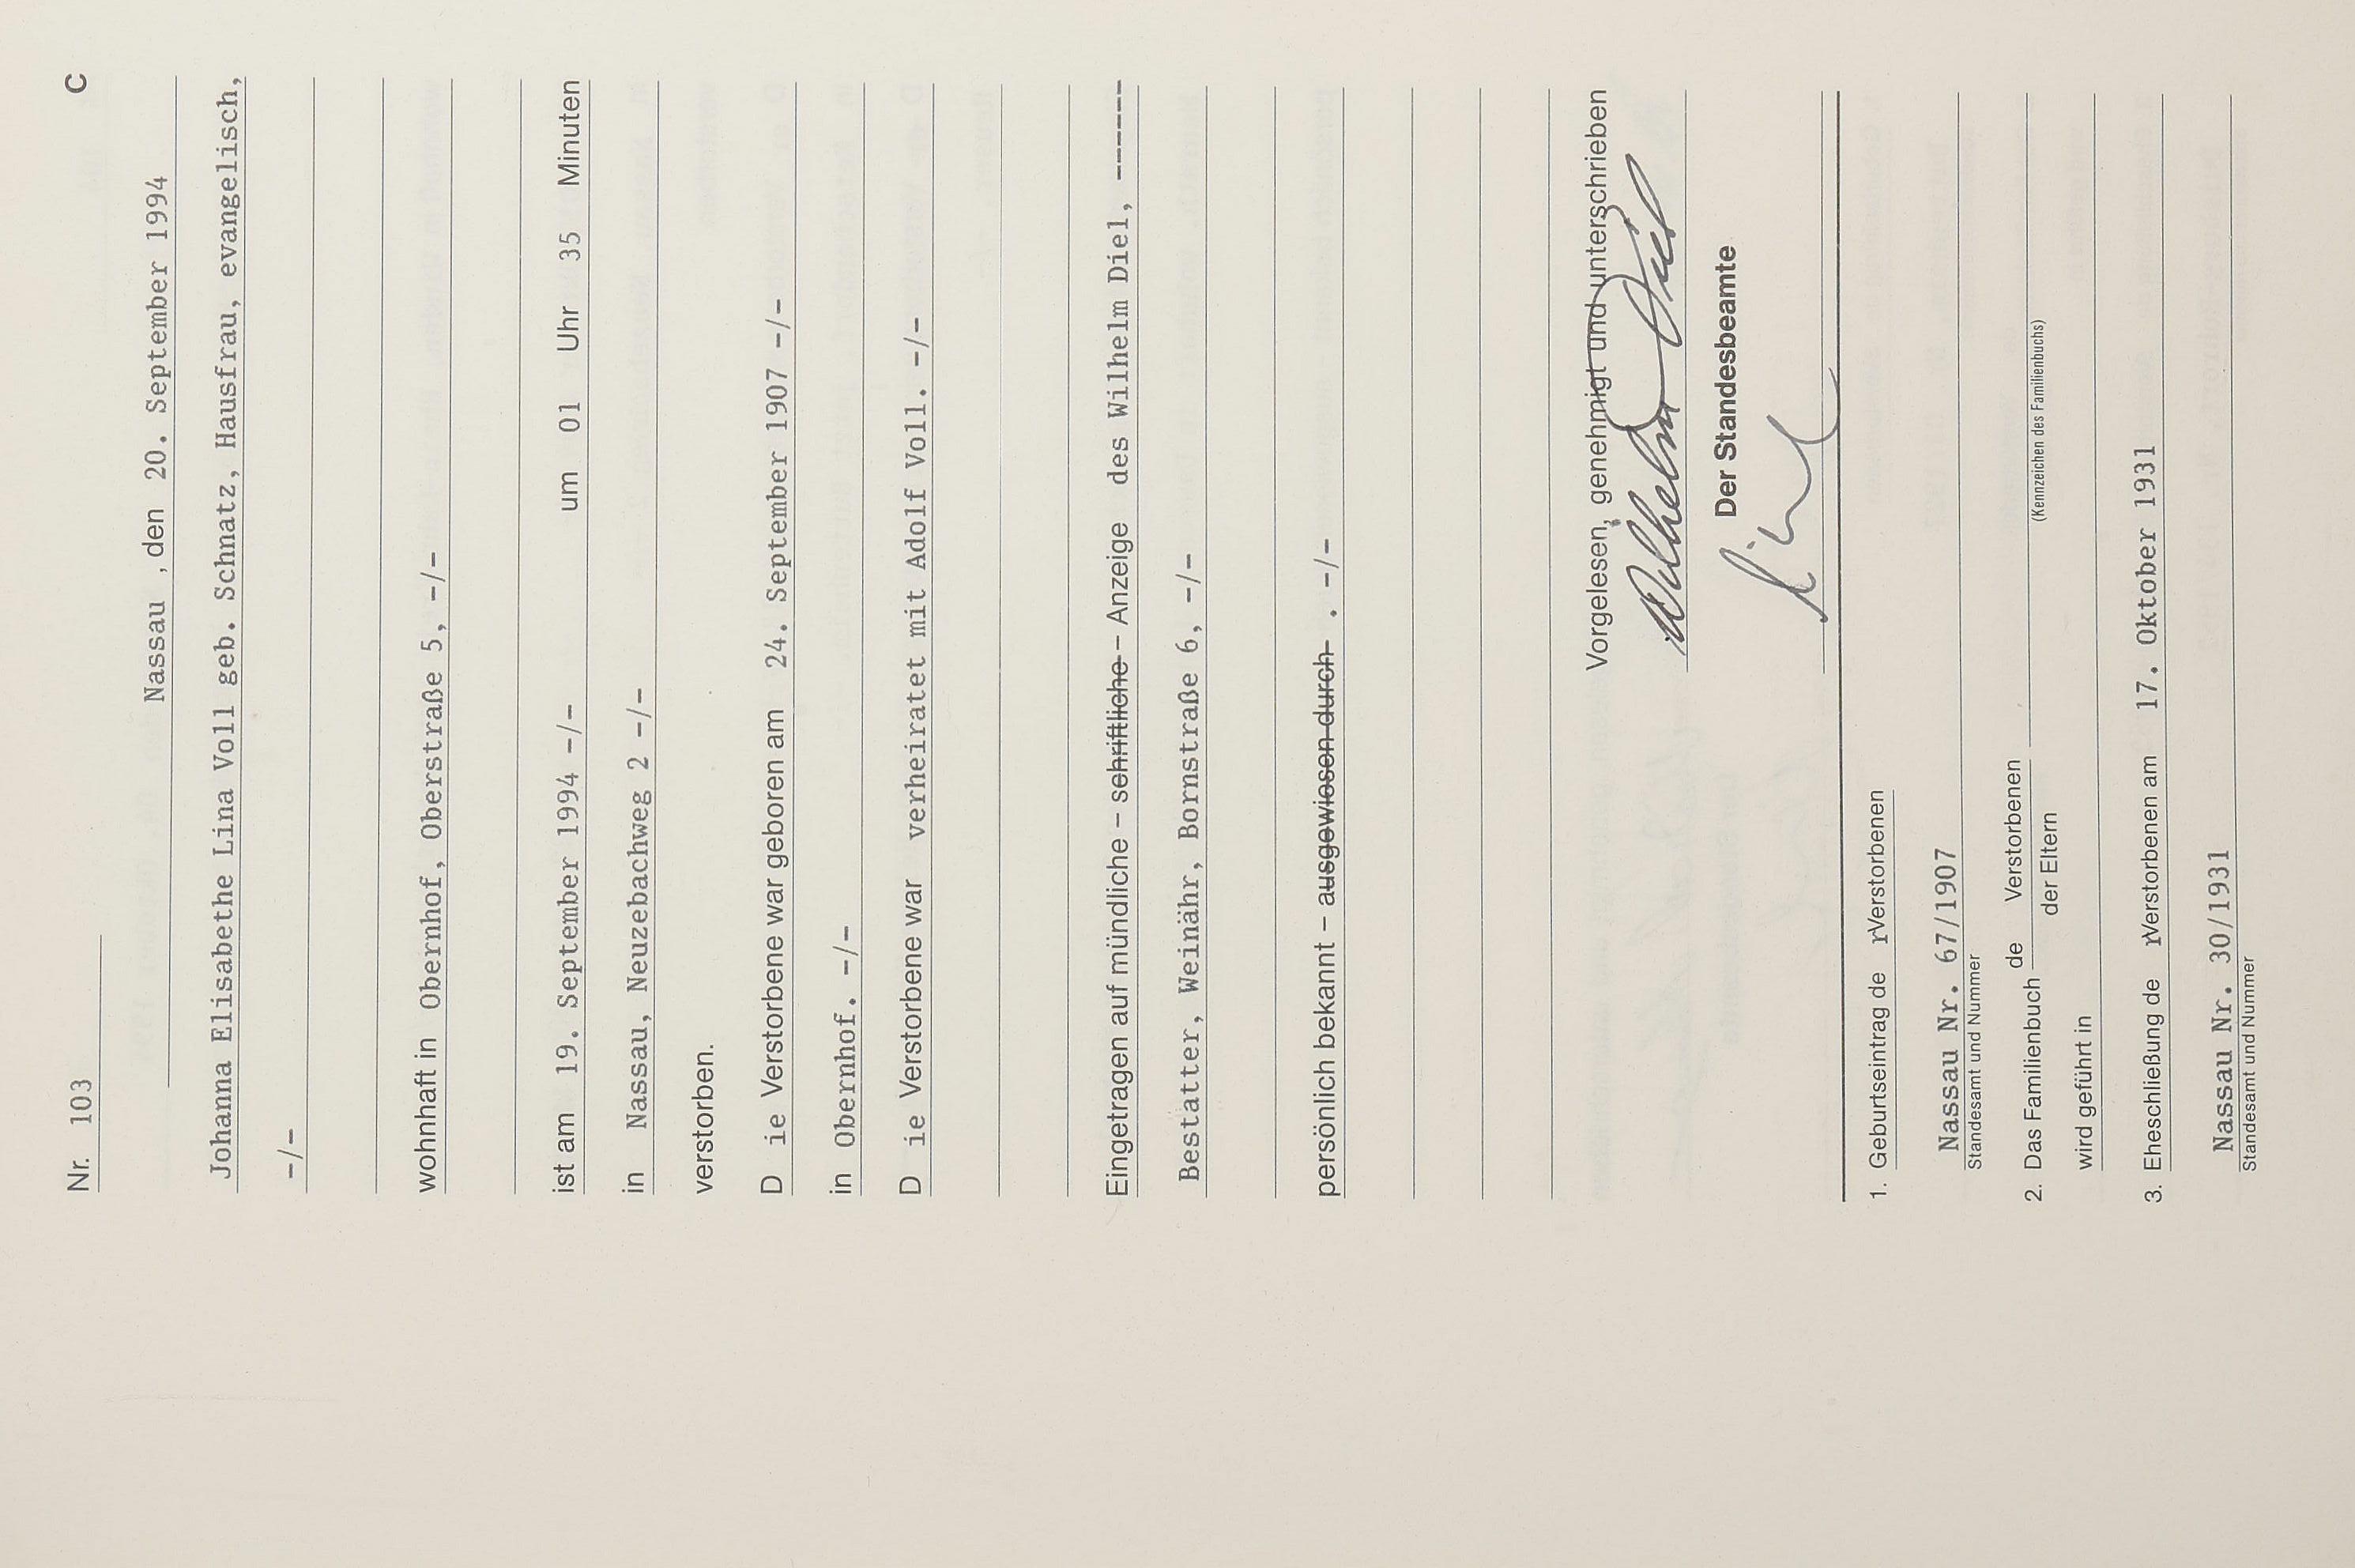 Nr. 103 C
Nassau , den 20. September 1994
Johanna Elisabethe Lina Voll geb. Schnatz, Hausfrau, evangelisch,
-/-
wohnhaft in Obernhof, Oberstraße 5, -/-
ist am 19. September 1994 -/- um 01 Uhr 35 Minuten
in Nassau, Neuzebachweg 2 -/-
verstorben.
D ie Verstorbene war geboren am 24. September 1907 -/-
in Obernhof. -/-
D ie Verstorbene war verheiratet mit Adolf Voll. -/-
Eingetragen auf mündliche – schriftliche – Anzeige des Wilhelm Diel, -------
Bestatter, Weinähr, Bornstraße 6, -/-
persönlich bekannt – ausgewiesen durch . -/-
Vorgelesen, genehmigt und unterschrieben
Wilhelm Diel
Der Standesbeamte
1. Geburtseintrag de rVerstorbenen
Nassau Nr. 67/1907
Standesamt und Nummer
2. Das Familienbuch de Verstorbenen
der Eltern
(Kennzeichen des Familienbuchs)
wird geführt in
3. Eheschließung de rVerstorbenen am 17. Oktober 1931
Nassau Nr. 30/1931
Standesamt und Nummer